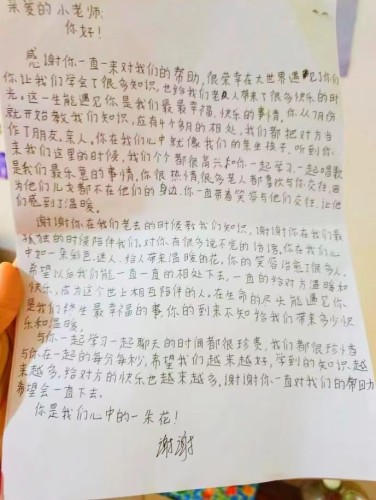 亲爱的小老师:
你好!
感谢你一直一来对我们的帮助,很荣幸在大世界遇见了你们
你让我们学会了很多知识,也给我们老人带来了很多快乐的时
光。这一生能遇见你是我们最最幸福,快乐的事情,你从7月份
就开始教我们知识,应有4个多月的相处,我们都把对方当
作了朋友,亲人。你在我们心中就像我们的亲生孩子。听到你
来我们这里的时候,我们个个都很高兴和你一起学习,一起唱歌
是我们最乐意的事情,你很热情,很多老人都喜欢与你交往,因
为他们儿女都不在他们的身边.你一直带着笑容与他们交往,让他
们感到了温暖。
谢谢你在我们老去的时候教我们知识。谢谢你在我们最
孤独的时候陪伴我们,对你有很多说不完的话语,你在我们心
中如一朵彩色,迷人,给人带来温暖的花,你的笑容治愈了很多人。
希望以后我们能一直一直的相处下去。一直的给对方温暖和
快乐,成为这个世上相互陪伴的人。在生命的尽头能遇见你
是我们终生最幸福的事你的到来不知给我们带来多少快
乐和温暖。
与你一起学习一起聊天的时间都很珍贵,我们都很珍惜
与你在一起的每分每秒,希望我们越来越好,学到的知识越
来越多,给对方的快乐也越来越多,谢谢你一直对我们的帮助
希望会一直下去。
你是我们心中的一朵花!
谢谢